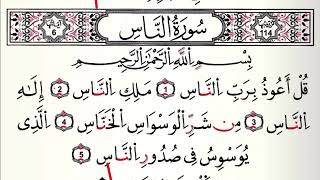 سُورَةُ النَّاسِ
آياتها 6 114
بِسْمِ اللَّهِ الرَّحْمَٰنِ الرَّحِيمِ
قُلْ أَعُوذُ بِرَبِّ النَّاسِ 1 مَلِكِ النَّاسِ 2 إِلَٰهِ
النَّاسِ 3 مِن شَرِّ الْوَسْوَاسِ الْخَنَّاسِ 4 الَّذِي
يُوَسْوِسُ فِي صُدُورِ النَّاسِ 5